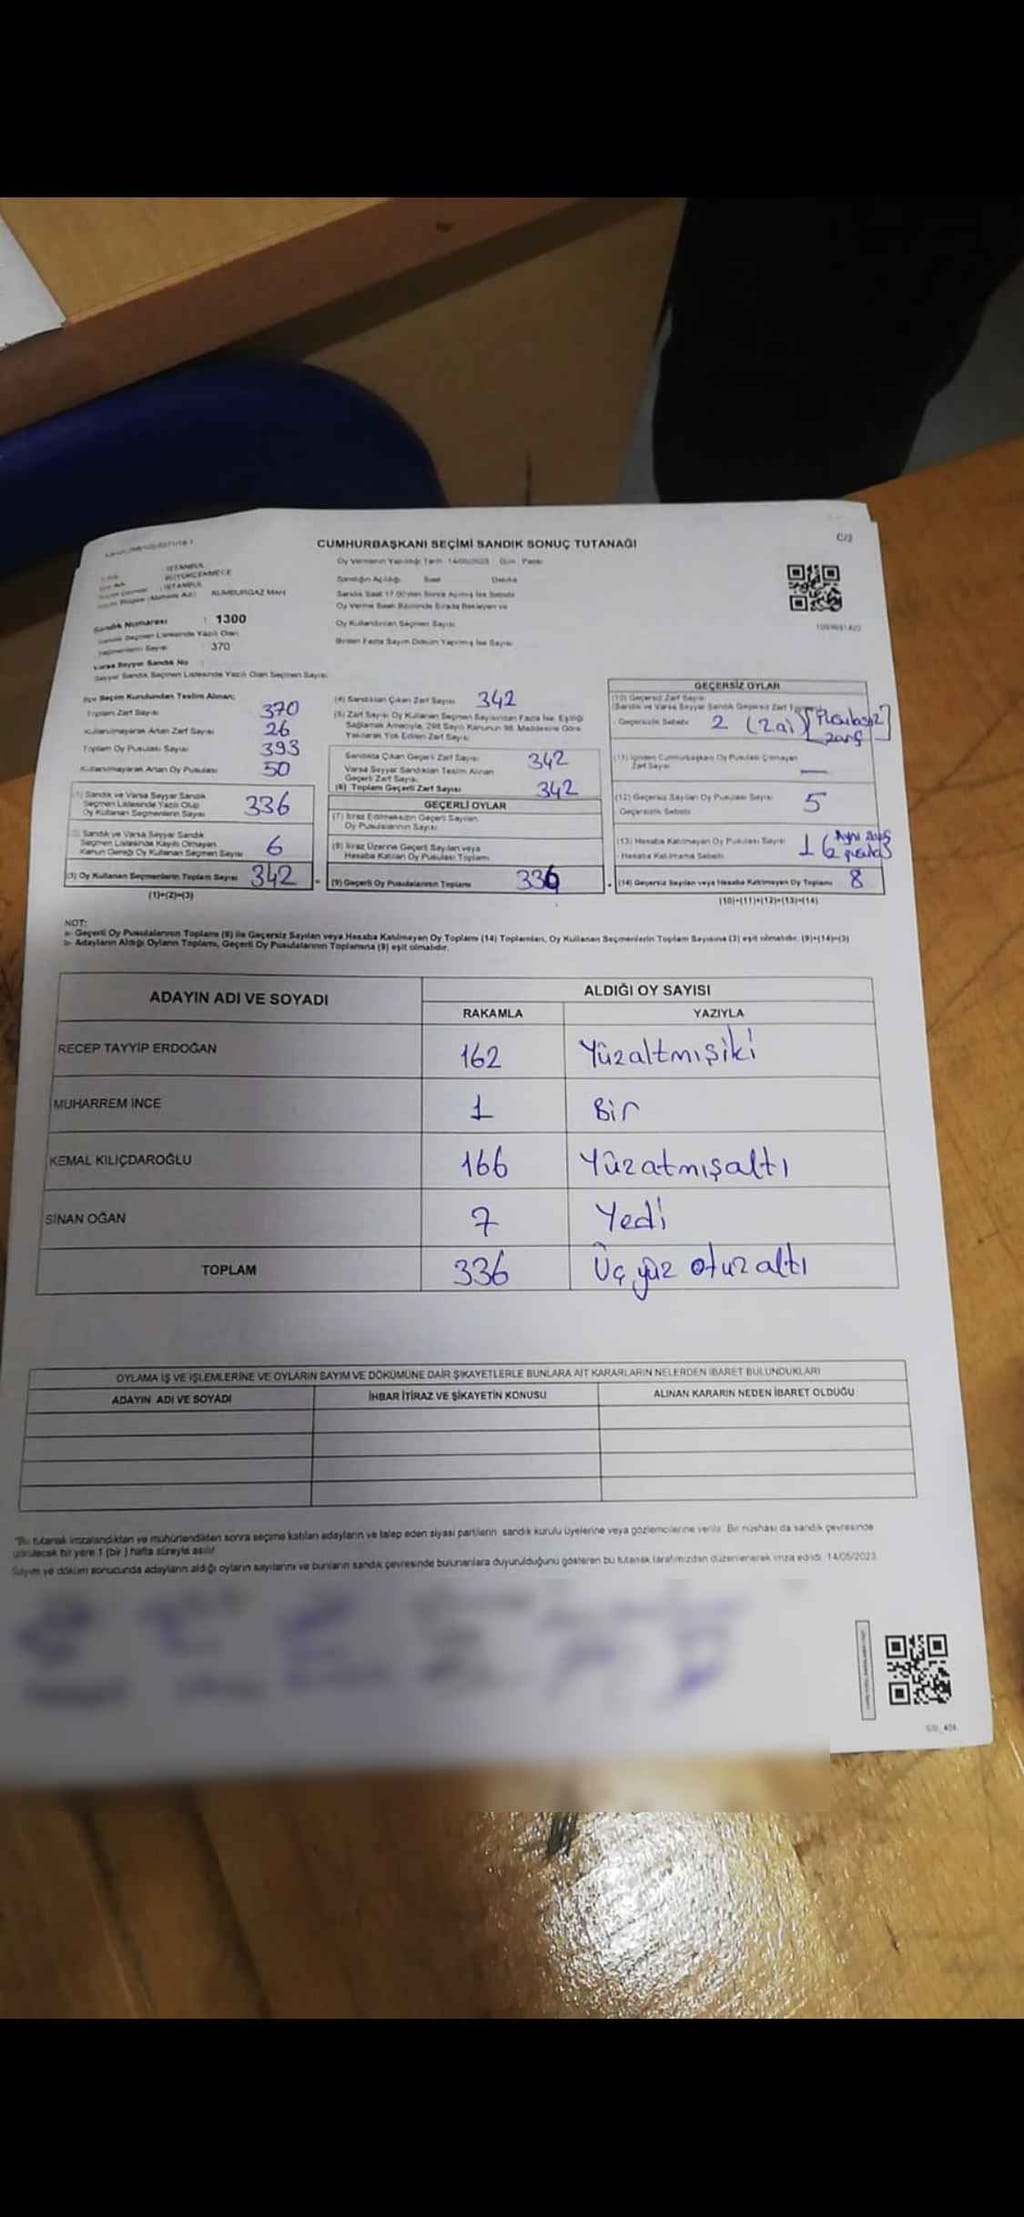 CUMHURBAŞKANI SEÇİMİ SANDIK SONUÇ TUTANAĞI
C/3
Oy Vermenin Yapıldığı Tarih 14/05/2023 Gün : Pazar
İSTANBUL
BÜYÜKÇEKMECE
İSTANBUL
KUMBURGAZ MAH
Sandığın Açıldığı Saat Dakika
Sandık Saat 17.00'den Sonra Açılmış İse Sebebi
Oy Verme Saati Bitiminde Sırada Bekleyen ve
Oy Kullandırılan Seçmen Sayısı
Birden Fazla Sayım Döküm Yapılmış İse Sayısı
Sandık Numarası : 1300
Sandık Seçmen Listesinde Yazılı Olan
Seçmenlerin Sayısı 370
Varsa Seyyar Sandık No
Seyyar Sandık Seçmen Listesinde Yazılı Olan Seçmen Sayısı
İlçe Seçim Kurulundan Teslim Alınan;
Toplam Zarf Sayısı 370
Kullanılmayarak Artan Zarf Sayısı 26
Toplam Oy Pusulası Sayısı 393
Kullanılmayarak Artan Oy Pusulası 50
(1) Sandık ve Varsa Seyyar Sandık
Seçmen Listesinde Yazılı Olup
Oy Kullanan Seçmenlerin Sayısı 336
Sandık ve Varsa Seyyar Sandık
Seçmen Listesinde Kayıtlı Olmayan
Kanun Gereği Oy Kullanan Seçmen Sayısı 6
(3) Oy Kullanan Seçmenlerin Toplam Sayısı 342
(1)+(2)=(3)
(4) Sandıktan Çıkan Zarf Sayısı 342
(5) Zarf Sayısı Oy Kullanan Seçmen Sayısından Fazla İse, Eşitliği
Sağlamak Amacıyla, 298 Sayılı Kanunun 98. Maddesine Göre
Yakılarak Yok Edilen Zarf Sayısı
Sandıkta Çıkan Geçerli Zarf Sayısı 342
Varsa Seyyar Sandıktan Teslim Alınan
Geçerli Zarf Sayısı
(6) Toplam Geçerli Zarf Sayısı 342
GEÇERLİ OYLAR
(7) İtiraz Edilmeksizin Geçerli Sayılan
Oy Pusulasının Sayısı
(8) İtiraz Üzerine Geçerli Sayılan veya
Hesaba Katılan Oy Pusulası Toplamı
(9) Geçerli Oy Pusulalarının Toplamı 336
GEÇERSİZ OYLAR
(10) Geçersiz Zarf Sayısı
(Sandık ve Varsa Seyyar Sandık Geçersiz Zarf
Geçersizlik Sebebi 2
Pusulasız
zarf
(11) İçinden Cumhurbaşkanı Oy Pusulası Çıkmayan
Zarf Sayısı —
(12) Geçersiz Sayılan Oy Pusulası Sayısı 5
Geçersizlik Sebebi
(13) Hesaba Katılmayan Oy Pusulası Sayısı 1
Hesaba Katılmama Sebebi
Aynı zarf
(14) Geçersiz Sayılan veya Hesaba Katılmayan Oy Toplamı 8
(10)+(11)+(12)+(13)=(14)
NOT:
a- Geçerli Oy Pusulalarının Toplamı (9) ile Geçersiz Sayılan veya Hesaba Katılmayan Oy Toplamı (14) Toplamları, Oy Kullanan Seçmenlerin Toplam Sayısına (3) eşit olmalıdır. (9)+(14)=(3)
b- Adayların Aldığı Oyların Toplamı, Geçerli Oy Pusulalarının Toplamına (9) eşit olmalıdır.
ADAYIN ADI VE SOYADI
ALDIĞI OY SAYISI
RAKAMLA YAZIYLA
RECEP TAYYİP ERDOĞAN 162 Yüzaltmışiki
MUHARREM İNCE 1 Bir
KEMAL KILIÇDAROĞLU 166 Yüzatmışaltı
SİNAN OĞAN 7 Yedi
TOPLAM 336 Üç yüz otuz altı
OYLAMA İŞ VE İŞLEMLERİNE VE OYLARIN SAYIM VE DÖKÜMÜNE DAİR ŞİKAYETLERLE BUNLARA AİT KARARLARIN NELERDEN İBARET BULUNDUKLARI
ADAYIN ADI VE SOYADI İHBAR İTİRAZ VE ŞİKAYETİN KONUSU ALINAN KARARIN NEDEN İBARET OLDUĞU
"Bu tutanak imzalandıktan ve mühürlendikten sonra seçime katılan adayların ve talep eden siyasi partilerin sandık kurulu üyelerine veya gözlemcilerine verilir. Bir nüshası da sandık çevresinde
görülecek bir yere 1 (bir ) hafta süreyle asılır
Sayım ve döküm sonucunda adayların aldığı oyların sayılarını ve bunların sandık çevresinde bulunanlara duyurulduğunu gösteren bu tutanak tarafımızdan düzenlenerek imza edildi. 14/05/2023